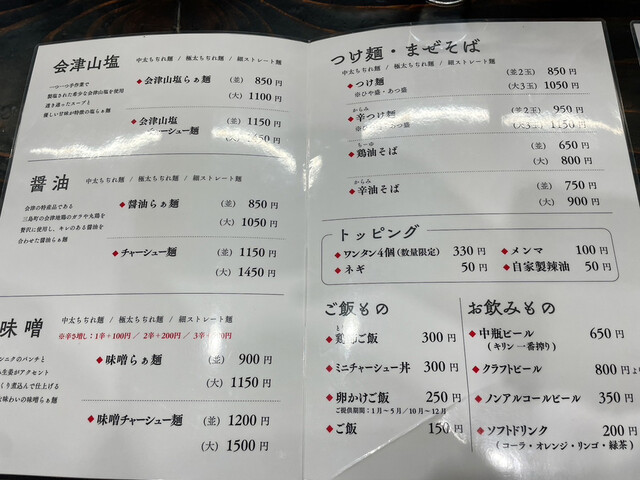 会津山塩
中太ちぢれ麺 / 極太ちぢれ麺 / 細ストレート麺
一つ一つ手作業で
製塩された希少な会津山塩を使用
透き通ったスープと
優しい甘味が特徴の塩らぁ麺
◆会津山塩らぁ麺 (並) 850円
(大) 1100円
◆会津山塩
チャーシュー麺 (並) 1150円
(大)
醤油
中太ちぢれ麺 / 極太ちぢれ麺 / 細ストレート麺
会津の特産品である
三島町の会津地鶏のガラや丸鶏を
贅沢に使用し、キレのある醤油を
合わせた醤油らぁ麺
◆醤油らぁ麺 (並) 850円
(大) 1050円
◆チャーシュー麺 (並) 1150円
(大) 1450円
味噌
中太ちぢれ麺 / 極太ちぢれ麺 / 細ストレート麺
※辛さ増し:1辛+100円 / 2辛+200円 / 3辛
ニンニクのパンチと
生姜がアクセント
くり煮込んで仕上げる
味わいの味噌らぁ麺
◆味噌らぁ麺 (並) 900円
(大) 1150円
◆味噌チャーシュー麺 (並) 1200円
(大) 1500円
つけ麺・まぜそば
中太ちぢれ麺 / 極太ちぢれ麺 / 細ストレート麺
◆つけ麺 (並2玉) 850円
※ひや盛・あつ盛 (大3玉) 1050円
からみ
◆辛つけ麺 (並2玉) 950円
※ひや盛・あつ盛 (大3玉) 1150円
ちーゆ
◆鶏油そば (並) 650円
(大) 800円
からみ
◆辛油そば (並) 750円
(大) 900円
トッピング
◆ワンタン4個(数量限定) 330円 ◆メンマ 100円
◆ネギ 50円 ◆自家製辣油 50円
ご飯もの
◆鶏ご飯 300円
◆ミニチャーシュー丼 300円
◆卵かけご飯 250円
ご提供期間:1月〜5月/10月〜12月
◆ご飯 150円
お飲みもの
◆中瓶ビール 650円
(キリン一番搾り)
◆クラフトビール 800円
◆ノンアルコールビール 350円
◆ソフトドリンク 200円
(コーラ・オレンジ・リンゴ・緑茶)